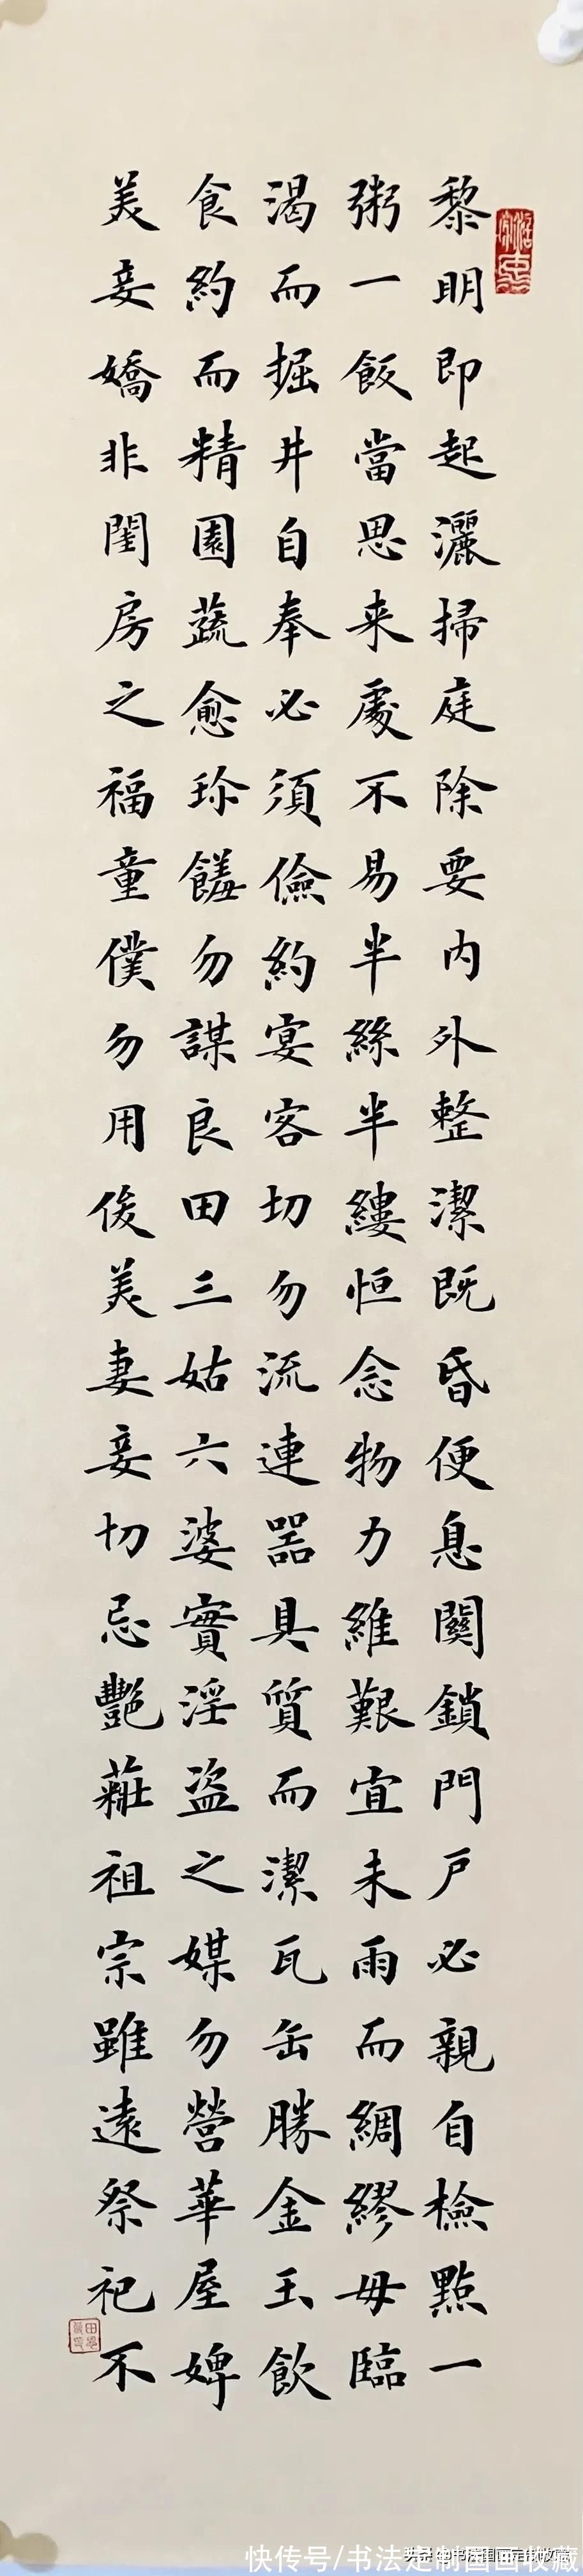 黎明即起灑掃庭除要内外整潔既昏便息關鎖門戶必親自檢點一
粥一飯當思来處不易半絲半縷恒念物力維艱宜未雨而綢繆毋臨
渴而掘井自奉必須儉約宴客切勿流連器具質而潔瓦缶勝金玉飲
食約而精園蔬愈珍饈勿謀良田三姑六婆實淫盜之媒勿營華屋婢
美妾嬌非閨房之福童僕勿用俊美妻妾切忌艷蘣祖宗雖遠祭祀不
快传号/书法定制国画收藏